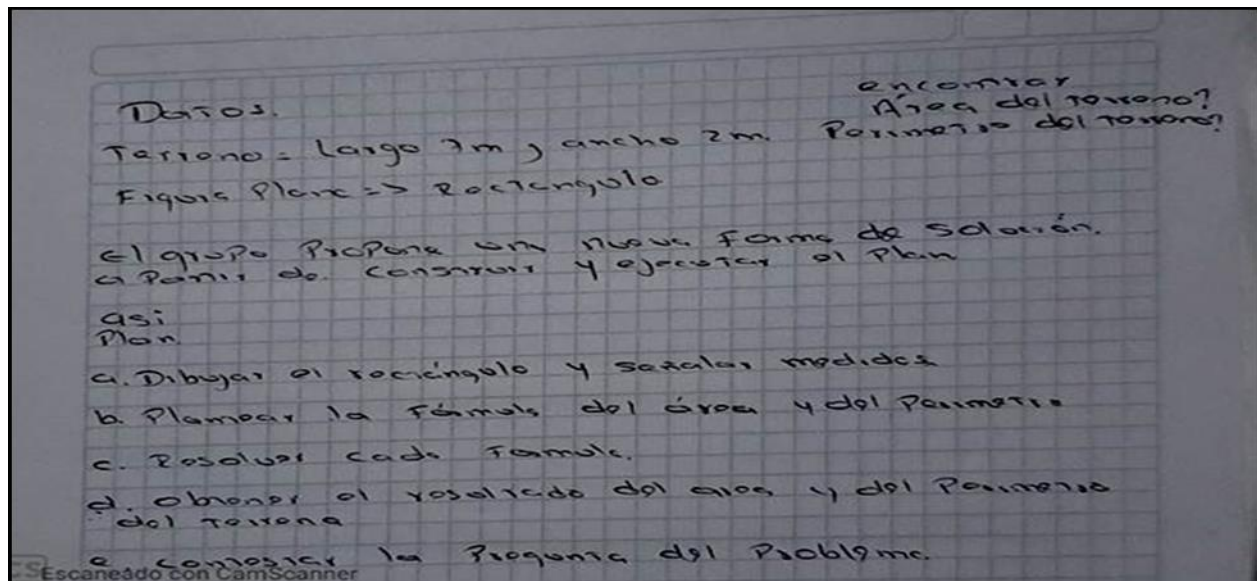 encontrar
Datos. Área del terreno?
Terreno = Largo 7m, ancho 2m. Perimetro del terreno?
Figura Plana => Rectángulo
El grupo Propone una nueva forma de solución.
a Partir de. Construir y ejecutar el Plan
así
Plan
a. Dibujar el rectángulo y señalar medidas
b. Plantear la Fórmula del área y del Perimetro
c. Resolver cada Formula.
d. Obtener el resultado del area y del Perimetro
del Terreno
e contestar la Pregunta del Problema.
CS Escaneado con CamScanner